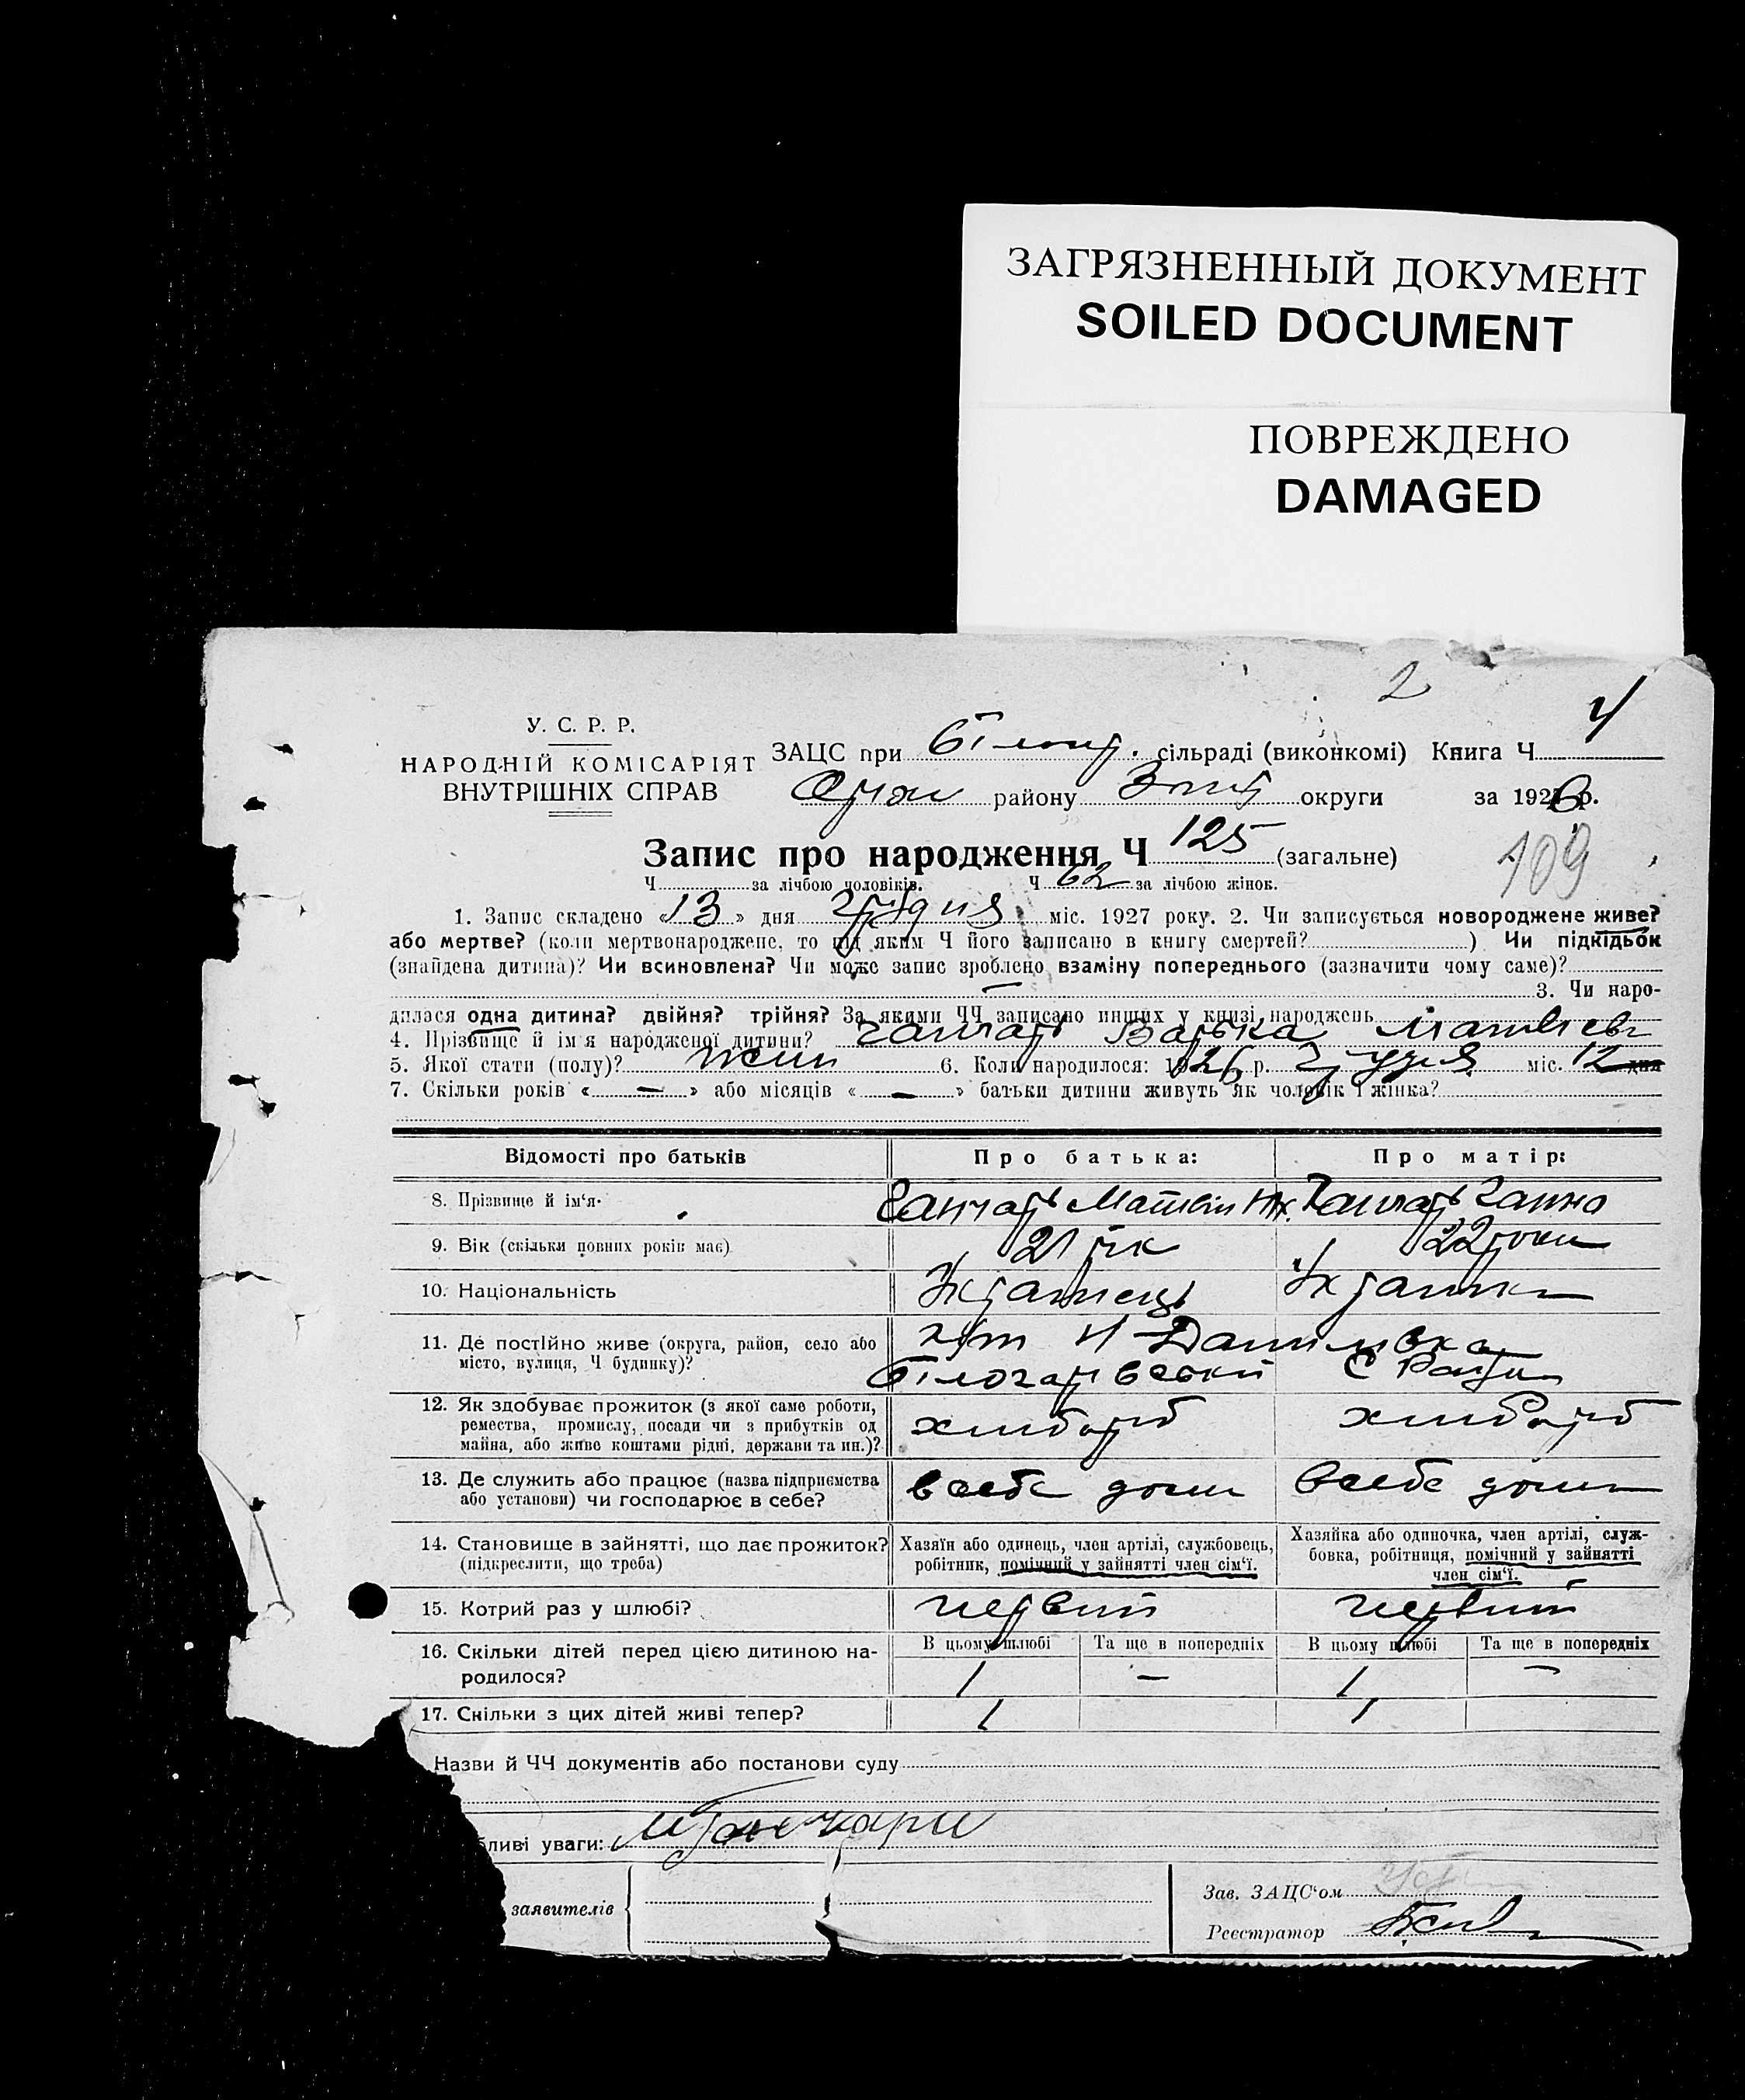 ЗАГРЯЗНЕННЫЙ ДОКУМЕНТ
SOILED DOCUMENT
ПОВРЕЖДЕНО
DAMAGED
2
4
У. С. Р. Р.
НАРОДНІЙ КОМІСАРІЯТ
ВНУТРІШНІХ СПРАВ
ЗАЦС при сільраді (виконкомі) Книга Ч
району округи за 1926 р.
Запис про народження Ч 125 (загальне)
109
Ч за лічбою чоловіків. Ч 62 за лічбою жінок.
1. Запис складено «13» дня грудня міс. 1927 року. 2. Чи записується новороджене живе?
або мертве? (коли мертвонароджене, то під яким Ч його записано в книгу смертей? ) Чи підкідьок
(знайдена дитина)? Чи всиновлена? Чи може запис зроблено взаміну попереднього (зазначити чому саме)?
— 3. Чи наро-
дилася одна дитина? двійня? трійня? За якими ЧЧ записано инших у книзі народжень
4. Прізвище й ім'я народженої дитини? Ганчарь Варька Матвіев
5. Якої стати (полу)? жин 6. Коли народилося: 1926 р. грудня міс. 12 дня
7. Скільки років «—» або місяців «—» батьки дитини живуть як чоловік і жінка?
Відомості про батьків Про батька: Про матір:
8. Прізвище й ім'я. Ганчарь Матвій Ганчарь Ганна
9. Вік (скільки повних років має) 21 рік 22 роки
10. Національність Українець Українка
11. Де постійно живе (округа, район, село або
місто, вулиця, Ч будинку)?
хут Н Данилівка
Білогарівський С Ради
12. Як здобуває прожиток (з якої саме роботи,
ремества, промислу, посади чи з прибутків од
майна, або живе коштами рідні, держави та ин.)?
хлибороб хлибороб
13. Де служить або працює (назва підприємства
або установи) чи господарює в себе?
в себе дома в себе дома
14. Становище в зайнятті, що дає прожиток?
(підкреслити, що треба)
Хазяїн або одинець, член артілі, службовець,
робітник, помічний у зайнятті член сім'ї.
Хазяйка або одиночка, член артілі, служ-
бовка, робітниця, помічний у зайнятті
член сім'ї.
15. Котрий раз у шлюбі? первий первий
16. Скільки дітей перед цією дитиною на-
родилося?
В цьому шлюбі Та ще в попередніх В цьому шлюбі Та ще в попередніх
1 — 1 —
17. Скільки з цих дітей живі тепер? 1 1
Назви й ЧЧ документів або постанови суду
бливі уваги: М Ганчари
заявителів
Зав. ЗАЦС'ом
Реєстратор